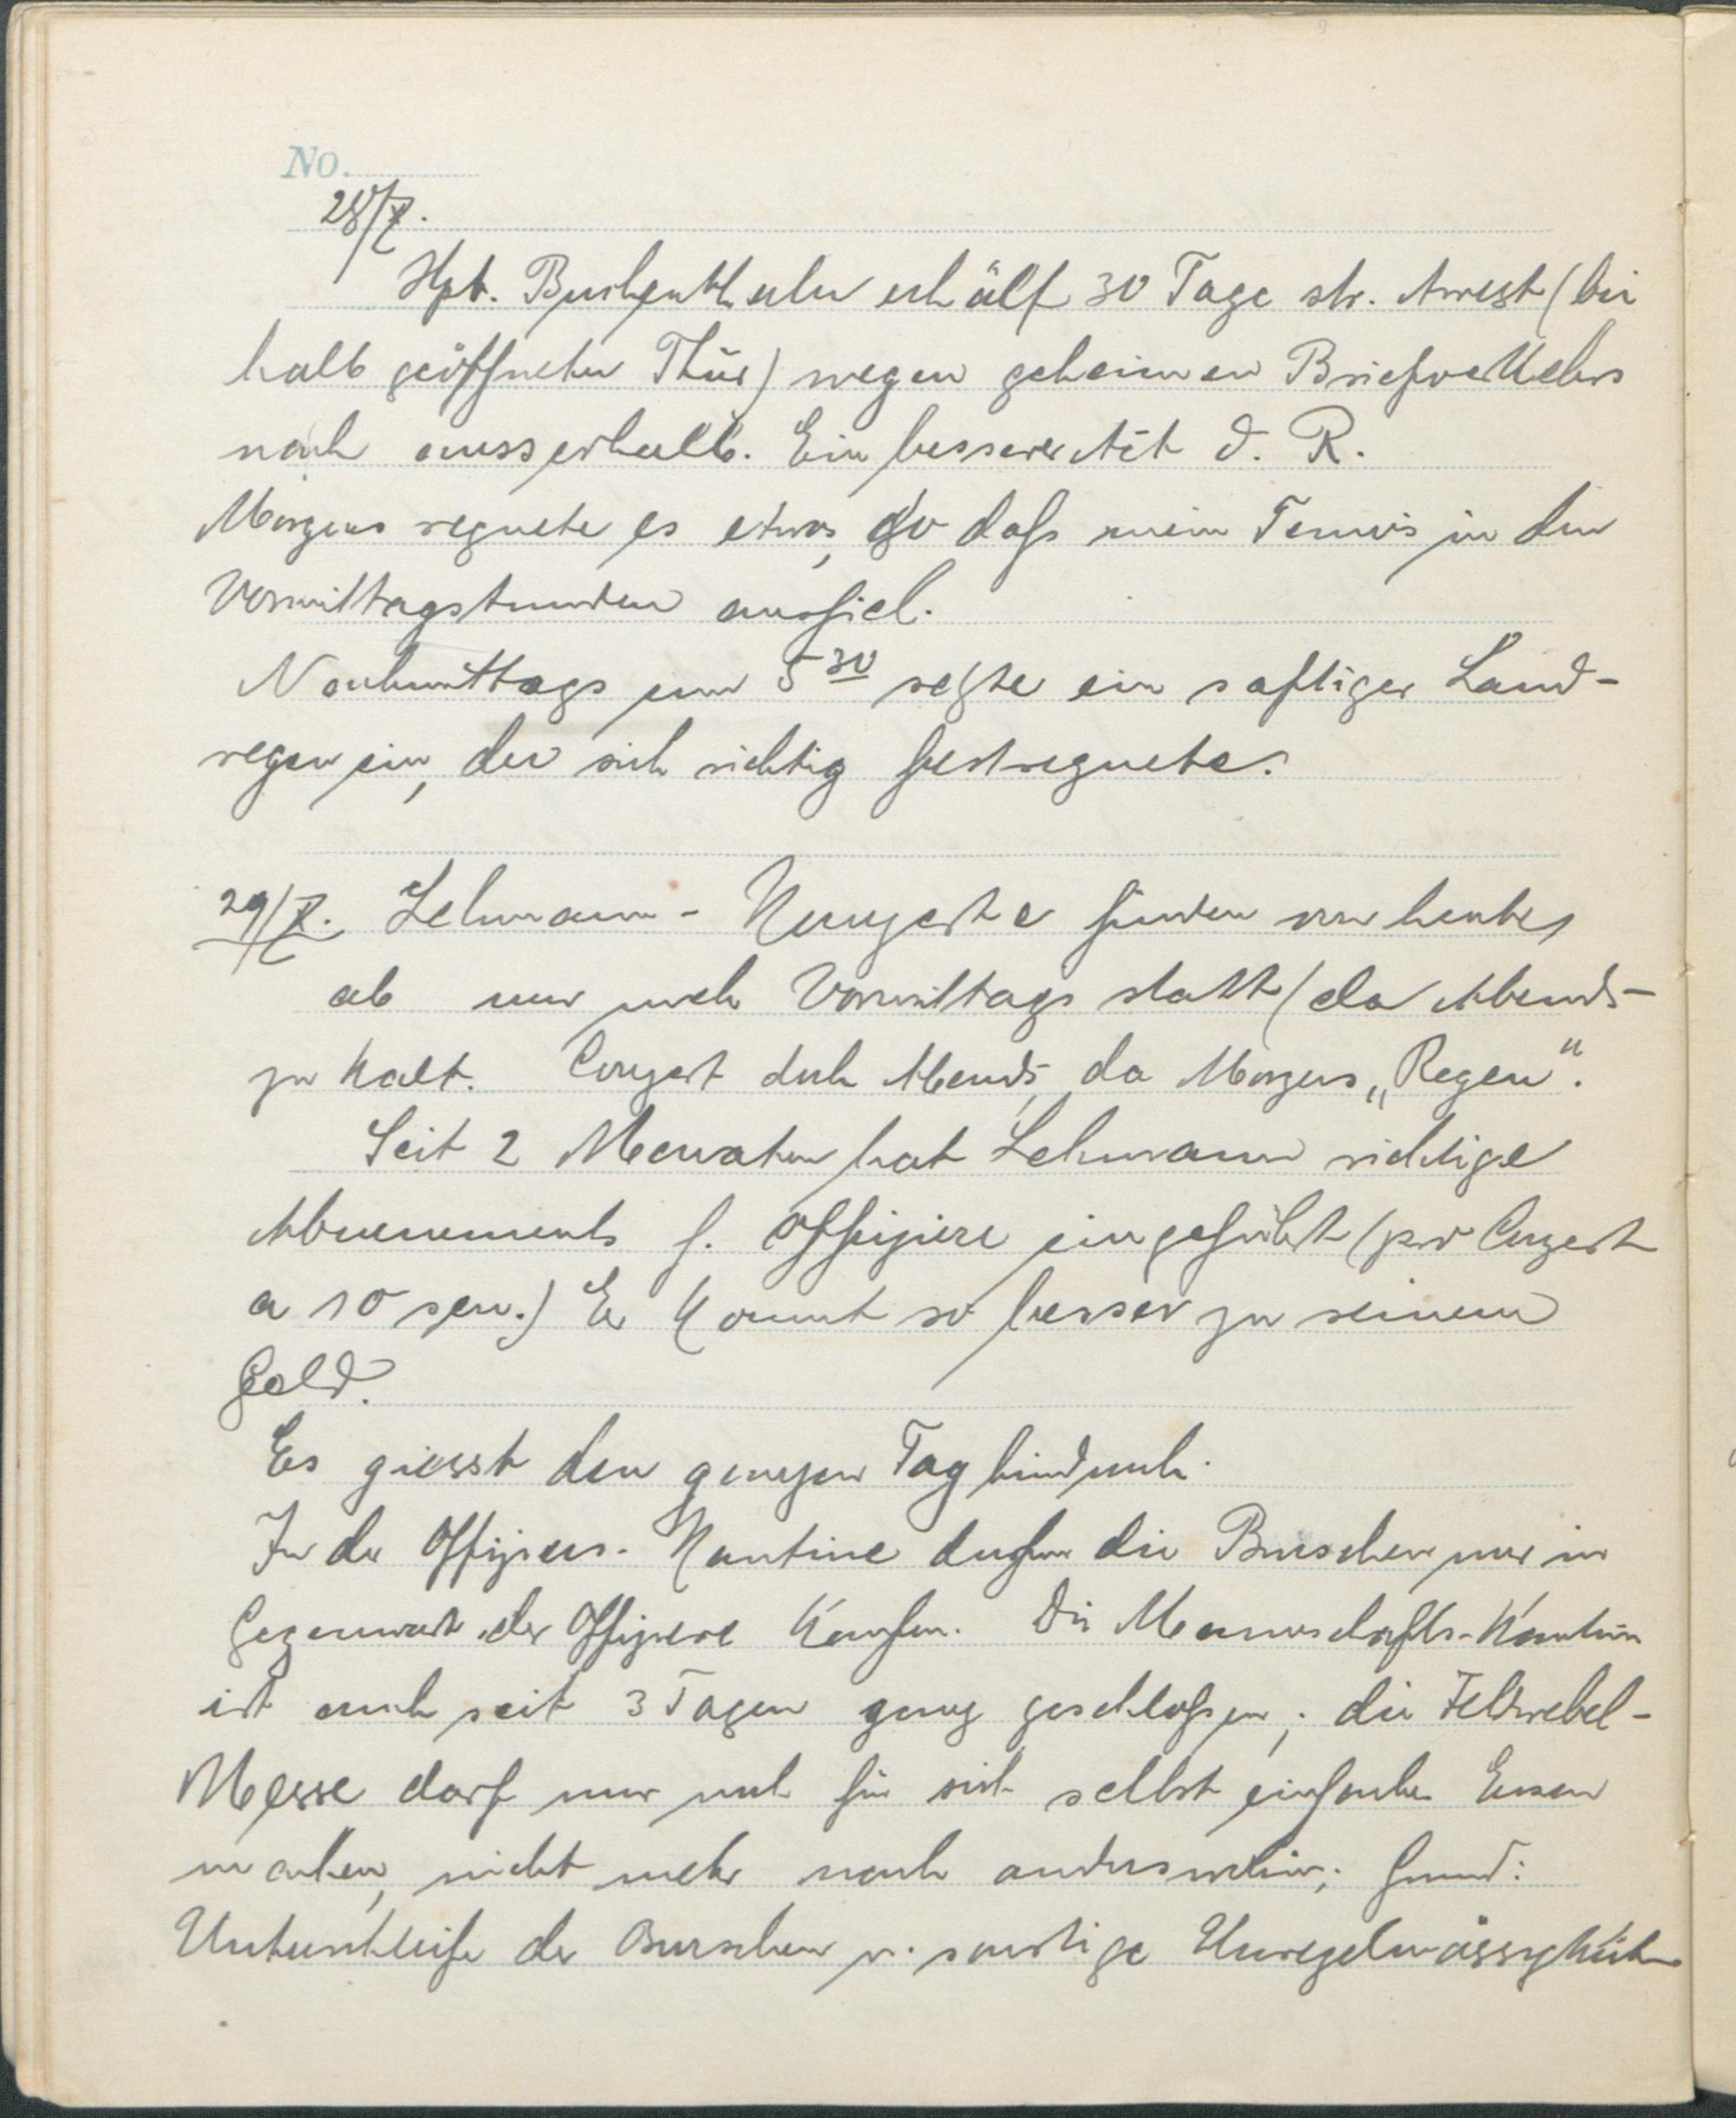 No.
28/X.
Hpt. Buchenthaler erhält 30 Tage str. Arrest (bei
halb geöffneter Thür) wegen geheimen Briefverkehrs
nach ausserhalb. Ein besserer Akt d. R.
Morgens regnete es etwas, so daß mein Tennis in den
Vormittagstunden ausfiel.
Nachmittags um 5 30 setzte ein saftiger Land-
regen ein, der sich richtig festregnete.
29/X. Lehmann-Konzerte finden von heute
ab nur noch Vormittags statt (da Abends
zu kalt. Conzert doch Abends, da Morgens „Regen".
Seit 2 Monaten hat Lehmann richtige
Abonnements f. Offiziere eingeführt (pro Conzert
a 10 sen.) Er kommt so besser zu seinem
Geld.
Es giesst den ganzen Tag hindurch.
In der Offiziers-Kantine dürfen die Burschen nur in
Gegenwart der Offiziere kaufen. Die Mannschafts-Kantine
ist auch seit 3 Tagen ganz geschloßen; die Feldwebel-
Messe darf nur noch für sich selbst einfaches Essen
machen, nicht mehr nach anderswohin; Grund:
Unterschleife der Burschen u. sonstige Unregelmässigkeiten